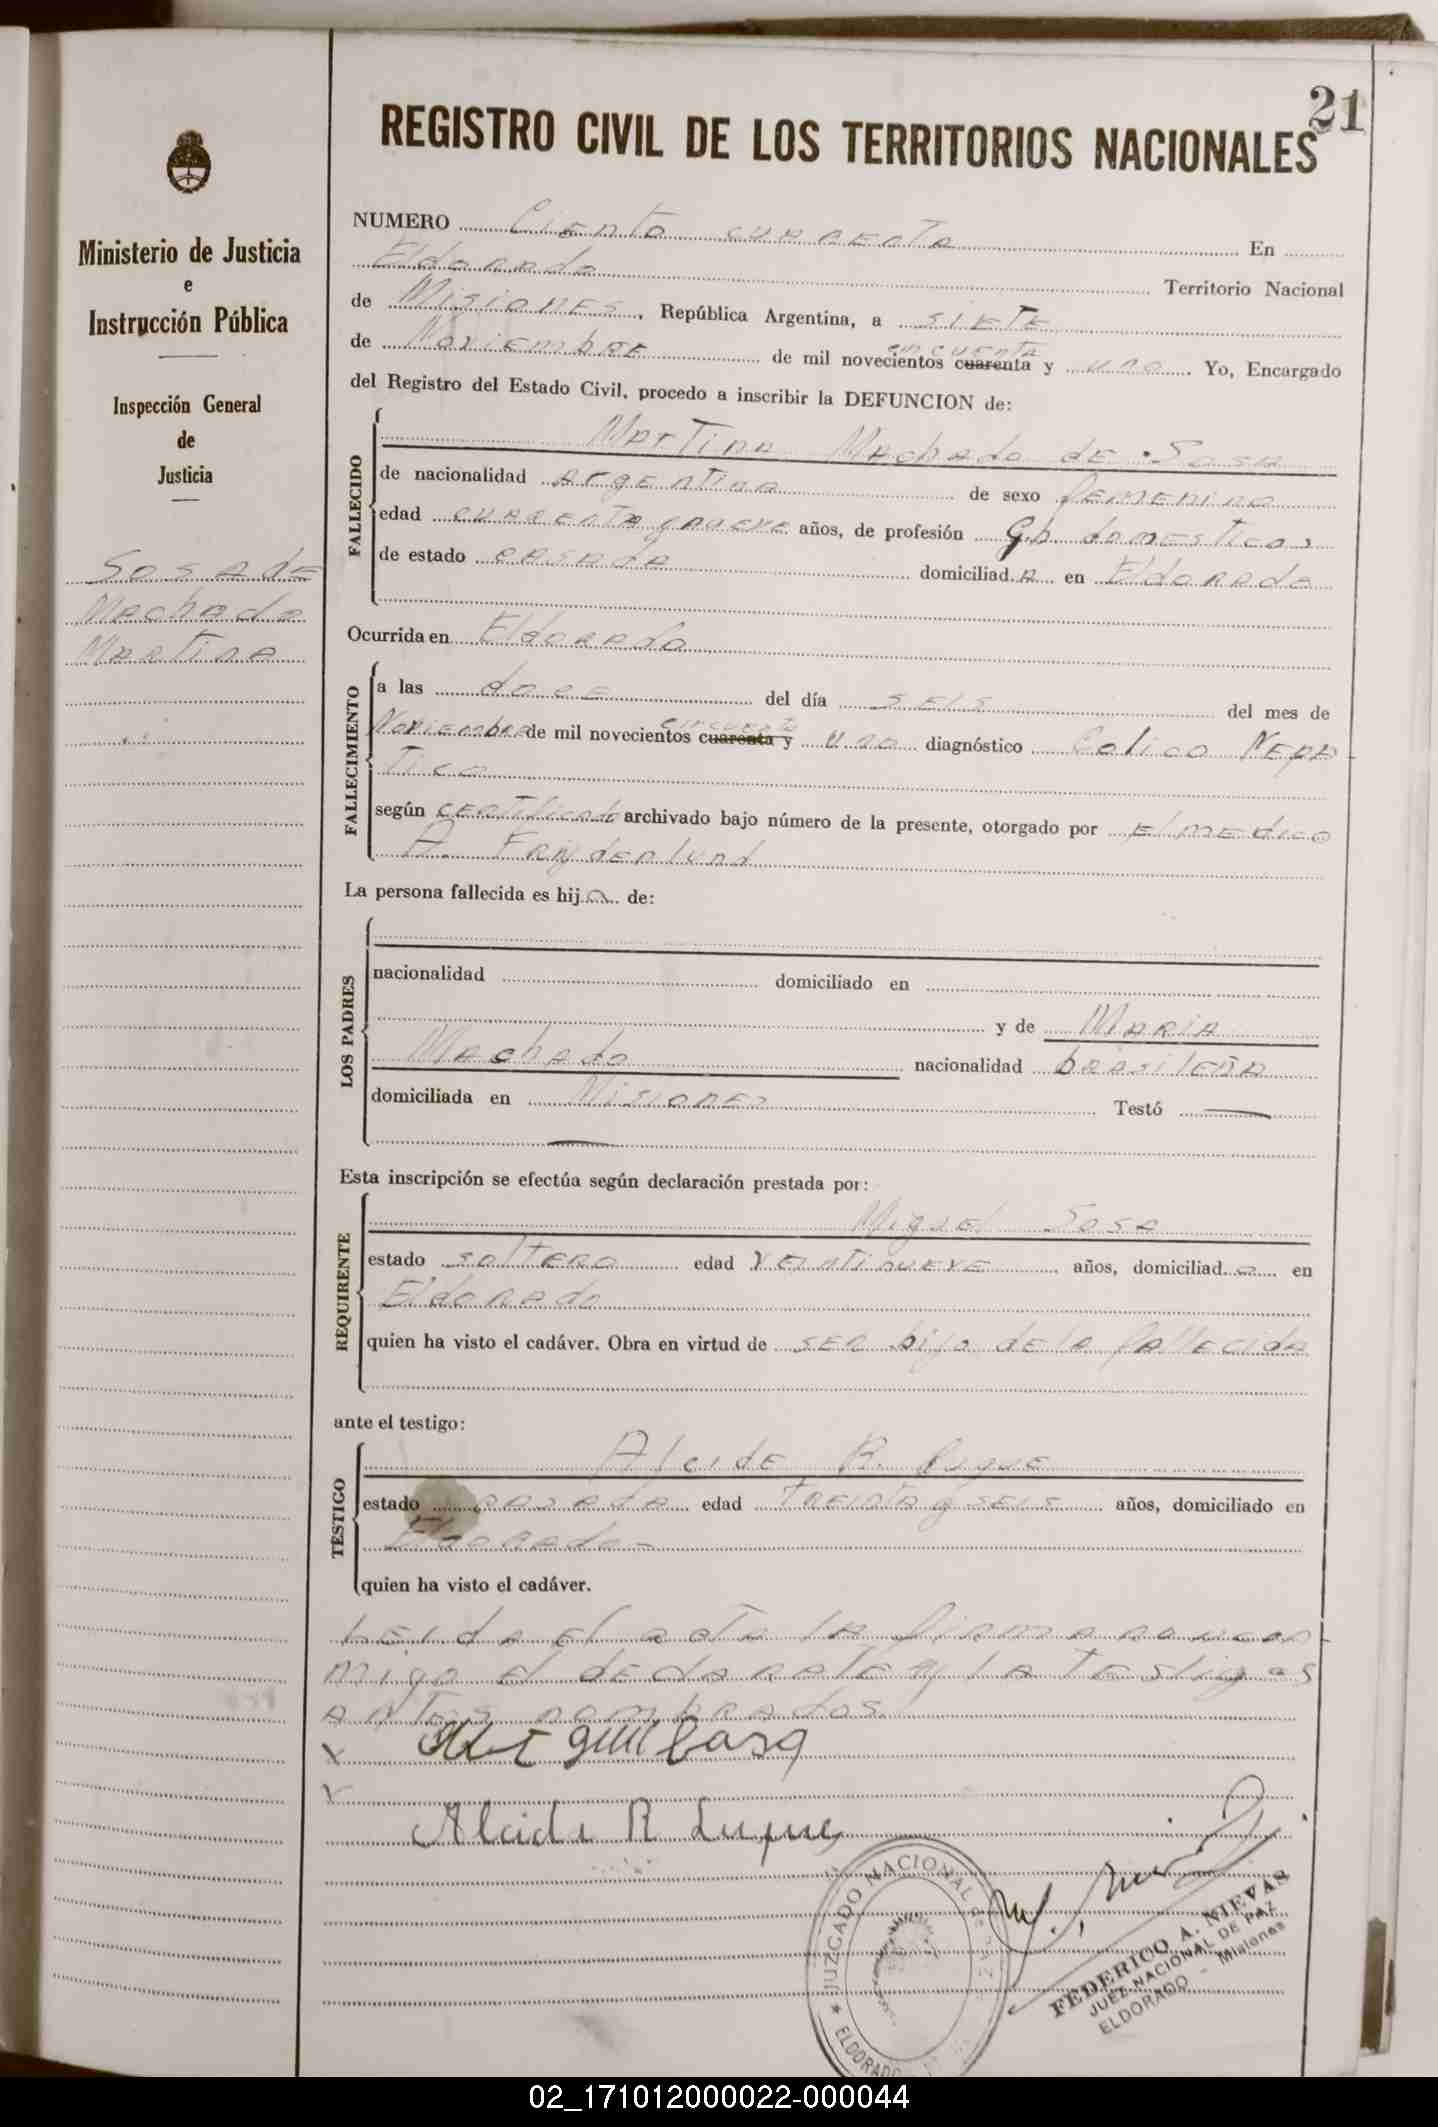 21
REGISTRO CIVIL DE LOS TERRITORIOS NACIONALES
Ministerio de Justicia
e
Instrucción Pública
Inspección General
de
Justicia
Sosa de
Machado
Martina
NUMERO Ciento cuarenta En
Eldorado Territorio Nacional
de Misiones, República Argentina, a siete
de Noviembre de mil novecientos cuarenta cincuenta y uno. Yo, Encargado
del Registro del Estado Civil, procedo a inscribir la DEFUNCION de:
FALLECIDO
Martina Machado de Sosa
de nacionalidad Argentina de sexo femenino
edad cuarenta y nueve años, de profesión q.h. domesticos
de estado casada domiciliad a en Eldorado
Ocurrida en Eldorado
FALLECIMIENTO
a las doce del día seis del mes de
Noviembre de mil novecientos cuarenta cincuenta y uno diagnóstico Colico Nefri-
tico
según certificado archivado bajo número de la presente, otorgado por el medico
A.
La persona fallecida es hij a de:
LOS PADRES
nacionalidad domiciliado en
y de Maria
Machado nacionalidad brasileña
domiciliada en Misiones Testó —
—
Esta inscripción se efectúa según declaración prestada por:
REQUIRENTE
Miguel Sosa
estado soltero edad veintinueve años, domiciliad o en
Eldorado
quien ha visto el cadáver. Obra en virtud de ser hijo de la fallecida
ante el testigo:
TESTIGO
Alcide R. Luque
estado casada edad treinta y seis años, domiciliado en
Eldorado-
quien ha visto el cadáver.
Leida el acta la firmaron con-
migo el declarate y la testigos
antes nombrados.
x Miguel Sosa
x
Alcide R Luque
JUZGADO NACIONAL DE PAZ
★ ELDORADO
FEDERICO A. NIEVAS
JUEZ NACIONAL DE PAZ
ELDORADO - Misiones
02_171012000022-000044